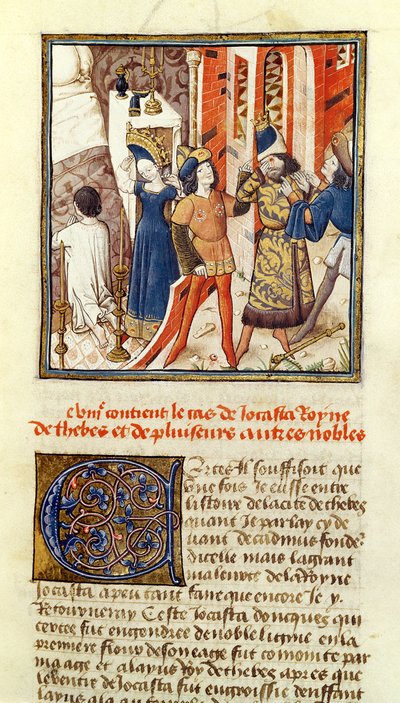 e biij contient le cas de Jocasta Royne
de thebes et de pluiseurs autres nobles
Certes Il souffisoit que
une fois Je eusse entre
listoire de la cite de thebes
quant Je parlay cy de
uant de cadmus fonder
dicelle mais la grant
maleurte de la Royne
Jocasta a peu tant faire que encore Je y
Retourneray Ceste Jocasta doncques qui
certes fut engendree de noble ligne en la
premiere fleur de son eage fut comointe par
mariage a layus Roy de thebes apres que
le ventre de Jocasta fut engroissie denffant
layus ala au